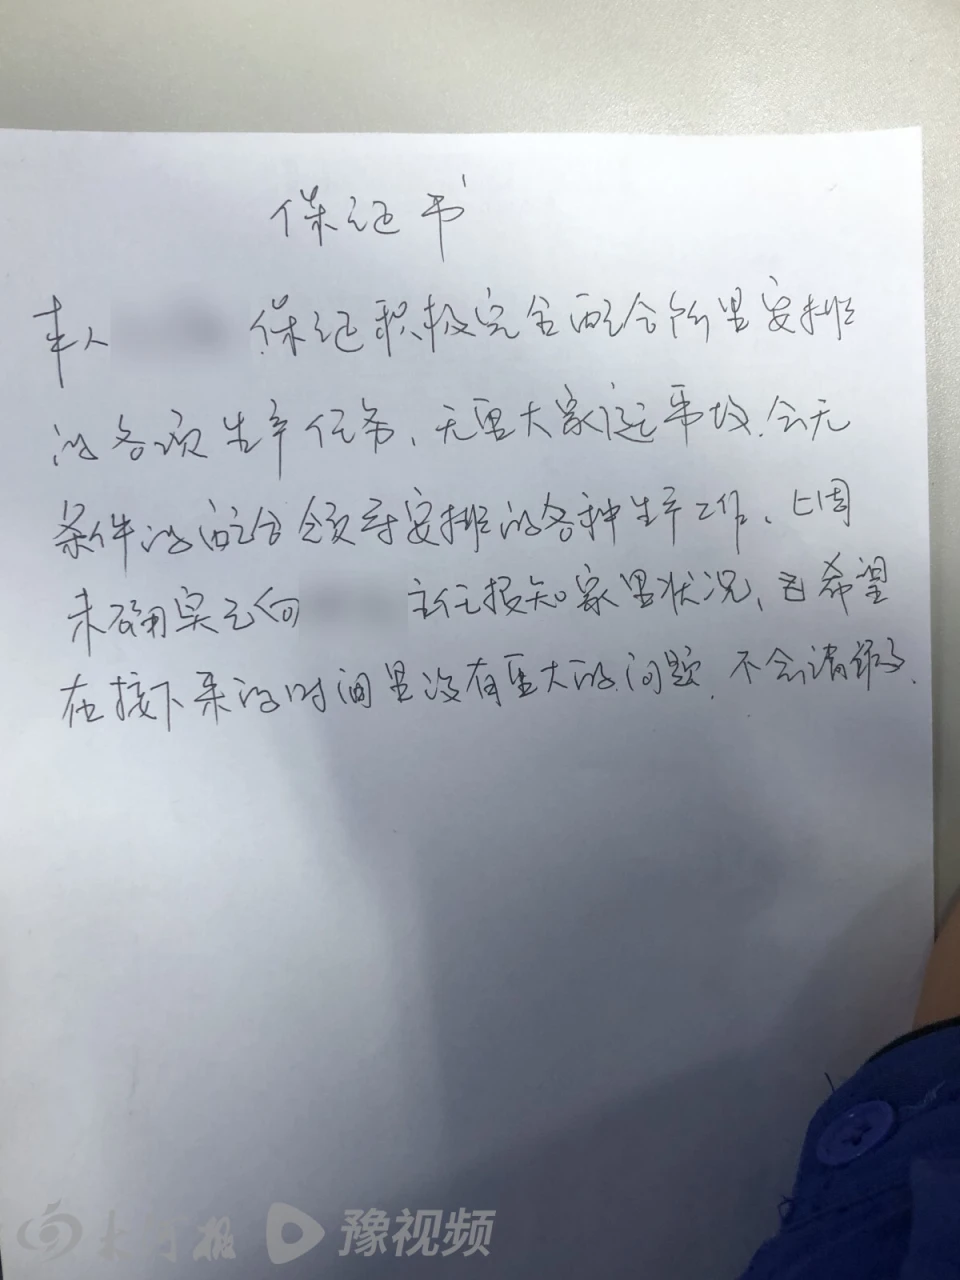 保证书
本人 保证积极完全配合所里安排
的各项生产任务、无重大家庭事故.会无
条件的配合领导安排的各种生产工作、上周
末确实已向 主任报知家里状况、也希望
在接下来的时间里没有重大的问题.不会请假.
大河报 豫视频